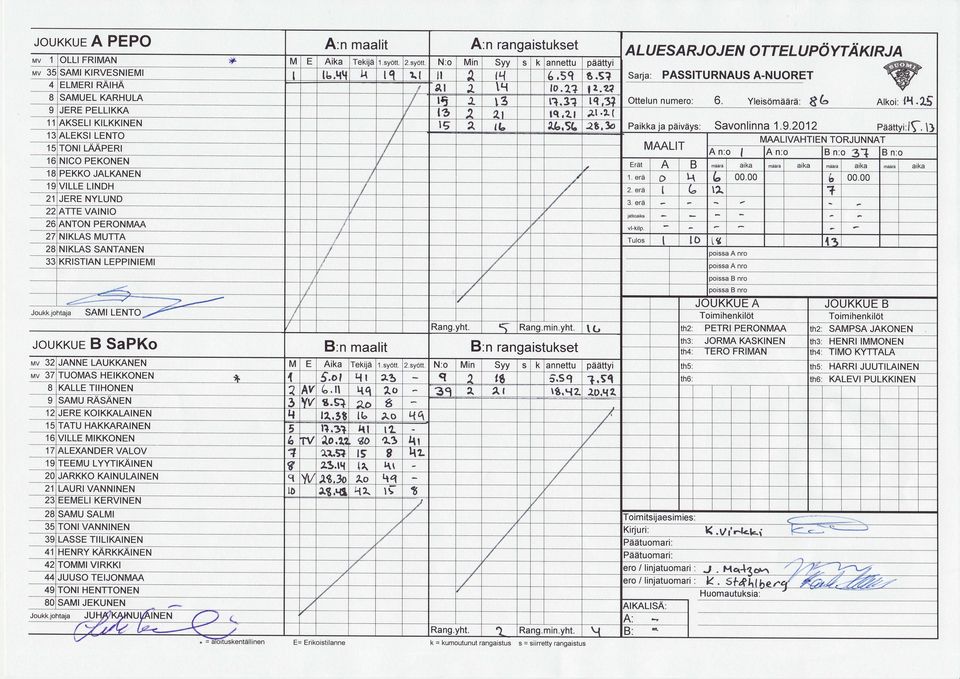 JOUKKUE A PEPO
A:n maalit
A:n rangaistukset
MV 1 OLLI FRIMAN *
MV 35 SAMI KIRVESNIEMI
4 ELMERI RÄIHÄ
8 SAMUEL KARHULA
9 JERE PELLIKKA
11 AKSELI KILKKINEN
13 ALEKSI LENTO
15 TONI LÄÄPERI
16 NICO PEKONEN
18 PEKKO JALKANEN
19 VILLE LINDH
21 JERE NYLUND
22 ATTE VAINIO
26 ANTON PERONMAA
27 NIKLAS MUTTA
28 NIKLAS SANTANEN
33 KRISTIAN LEPPINIEMI
Joukk.johtaja SAMI LENTO
M E Aika Tekijä 1.syött. 2.syött.
1 16.44 4 19 21
N:o Min Syy s k annettu päättyi
11 2 14 6.59 8.57
21 2 14 10.27 12.27
15 2 13 17.37 19,37
13 2 21 19.21 21.21
15 2 16 26,56 28,30
Rang.yht. 5 Rang.min.yht. 10
JOUKKUE B SaPKo
B:n maalit
B:n rangaistukset
MV 32 JANNE LAUKKANEN
MV 37 TUOMAS HEIKKONEN *
8 KALLE TIIHONEN
9 SAMU RÄSÄNEN
12 JERE KOIKKALAINEN
15 TATU HAKKARAINEN
16 VILLE MIKKONEN
17 ALEXANDER VALOV
19 TEEMU LYYTIKÄINEN
20 JARKKO KAINULAINEN
21 LAURI VANNINEN
23 EEMELI KERVINEN
28 SAMU SALMI
35 TONI VANNINEN
39 LASSE TIILIKAINEN
41 HENRY KÄRKKÄINEN
42 TOMMI VIRKKI
44 JUUSO TEIJONMAA
49 TONI HENTTONEN
80 SAMI JEKUNEN
Joukk.johtaja JUHA KAINULAINEN
M E Aika Tekijä 1.syött. 2.syött.
1 5.01 41 23 -
2 AV 6.11 49 20 -
3 YV 8.57 20 8 -
4 12.38 16 20 49
5 17.37 41 12 -
6 TV 20.22 80 23 41
7 22.57 15 8 42
8 23.14 12 41 -
9 YV 28,30 20 49 -
10 28.48 42 15 8
N:o Min Syy s k annettu päättyi
9 2 18 5.59 7.59
39 2 21 18.42 20.42
Rang.yht. 2 Rang.min.yht. 4
* = aloituskentällinen E= Erikoistilanne k = kumoutunut rangaistus s = siirretty rangaistus
ALUESARJOJEN OTTELUPÖYTÄKIRJA
SUOMI
Sarja: PASSITURNAUS A-NUORET
Ottelun numero: 6. Yleisömäärä: 86 Alkoi: 14.25
Paikka ja päiväys: Savonlinna 1.9.2012 Päättyi: 15.13
MAALIT
MAALIVAHTIEN TORJUNNAT
A n:o 1 A n:o B n:o 37 B n:o
Erät A B määrä aika määrä aika määrä aika määrä aika
1. erä 0 4 6 00.00 6 00.00
2. erä 1 6 12 7
3. erä - - - - - -
jatkoaika - - - - - -
vl-kilp. - - - - - -
Tulos 1 10 18 13
poissa A nro
poissa A nro
poissa B nro
poissa B nro
JOUKKUE A JOUKKUE B
Toimihenkilöt Toimihenkilöt
th2: PETRI PERONMAA th2: SAMPSA JAKONEN
th3: JORMA KASKINEN th3: HENRI IMMONEN
th4: TERO FRIMAN th4: TIMO KYTTALA
th5: th5: HARRI JUUTILAINEN
th6: th6: KALEVI PULKKINEN
Toimitsijaesimies:
Kirjuri: K.Virkki
Päätuomari:
Päätuomari:
ero / linjatuomari : J. Matzon
ero / linjatuomari : K. Ståhlberg
Huomautuksia:
AIKALISÄ:
A: -
B: -